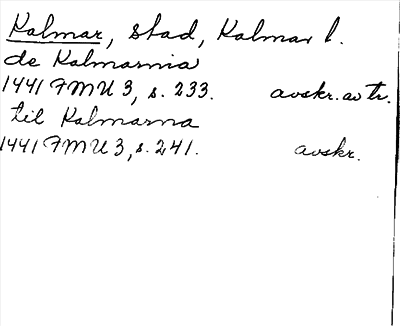 Kalmar, stad, Kalmar l.
de Kalmarnia
1441 FMU 3, s. 233. avskr. av tr.
til Kalmarna
1441 FMU 3, s. 241. avskr.